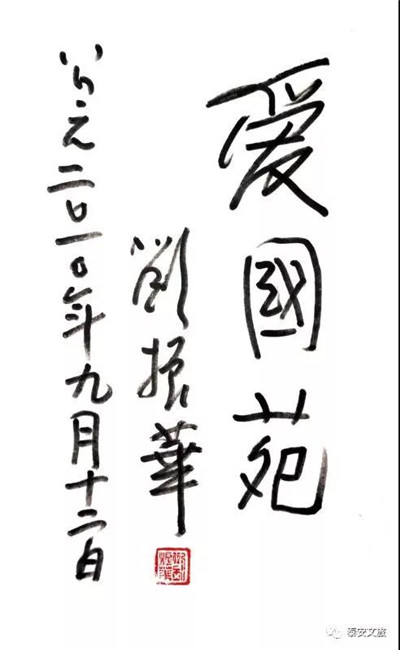 爱國苑
劉振華
公元二〇一〇年九月十二日
泰安文旅